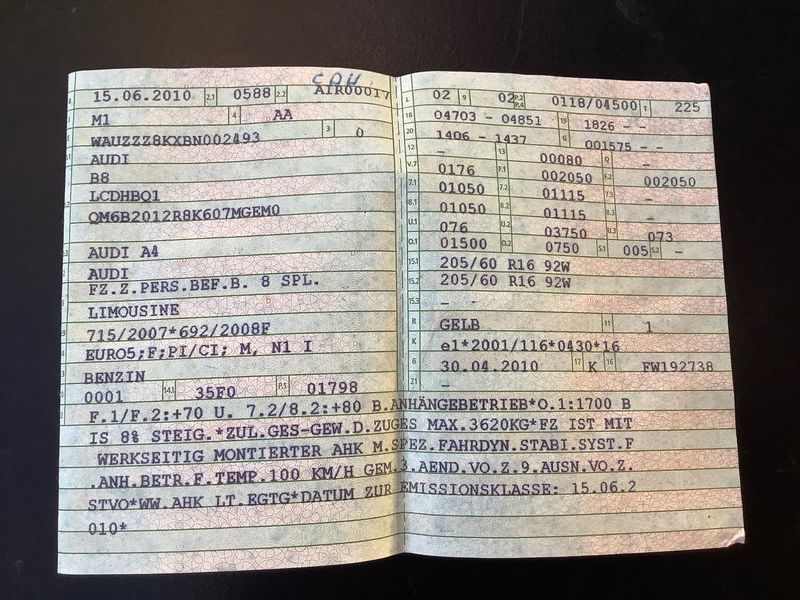 CDH
15.06.2010 2.1 0588 2.2 AIR00017
M1 4 AA
WAUZZZ8KXBN002493 3 0
AUDI
B8
LCDHBQ1
QM6B2012R8K607MGEM0
AUDI A4
AUDI
FZ.Z.PERS.BEF.B. 8 SPL.
LIMOUSINE
715/2007*692/2008F
EURO5;F;PI/CI; M, N1 I
BENZIN
0001 14.1 35F0 P.1 01798
L 02 9 02 P.2 P.4 0118/04500 T 225
18 04703 - 04851 19 1826 - -
20 1406 - 1437 G 001575 - -
12 - 13 00080 Q -
V.7 0176 F.1 002050 F.2 002050
7.1 01050 7.2 01115 7.3 -
8.1 01050 8.2 01115 8.3 -
U.1 076 U.2 03750 U.3 073
O.1 01500 O.2 0750 S.1 005 S.2 -
15.1 205/60 R16 92W
15.2 205/60 R16 92W
15.3 -
R GELB 11 1
K e1*2001/116*0430*16
6 30.04.2010 17 K 16 FW192738
21 -
F.1/F.2:+70 U. 7.2/8.2:+80 B.ANHÄNGEBETRIEB*O.1:1700 B
IS 8% STEIG.*ZUL.GES-GEW.D.ZUGES MAX.3620KG*FZ IST MIT
WERKSEITIG MONTIERTER AHK M.SPEZ.FAHRDYN.STABI.SYST.F
.ANH.BETR.F.TEMP.100 KM/H GEM.3.AEND.VO.Z.9.AUSN.VO.Z.
STVO*WW.AHK LT.EGTG*DATUM ZUR EMISSIONSKLASSE: 15.06.2
010*